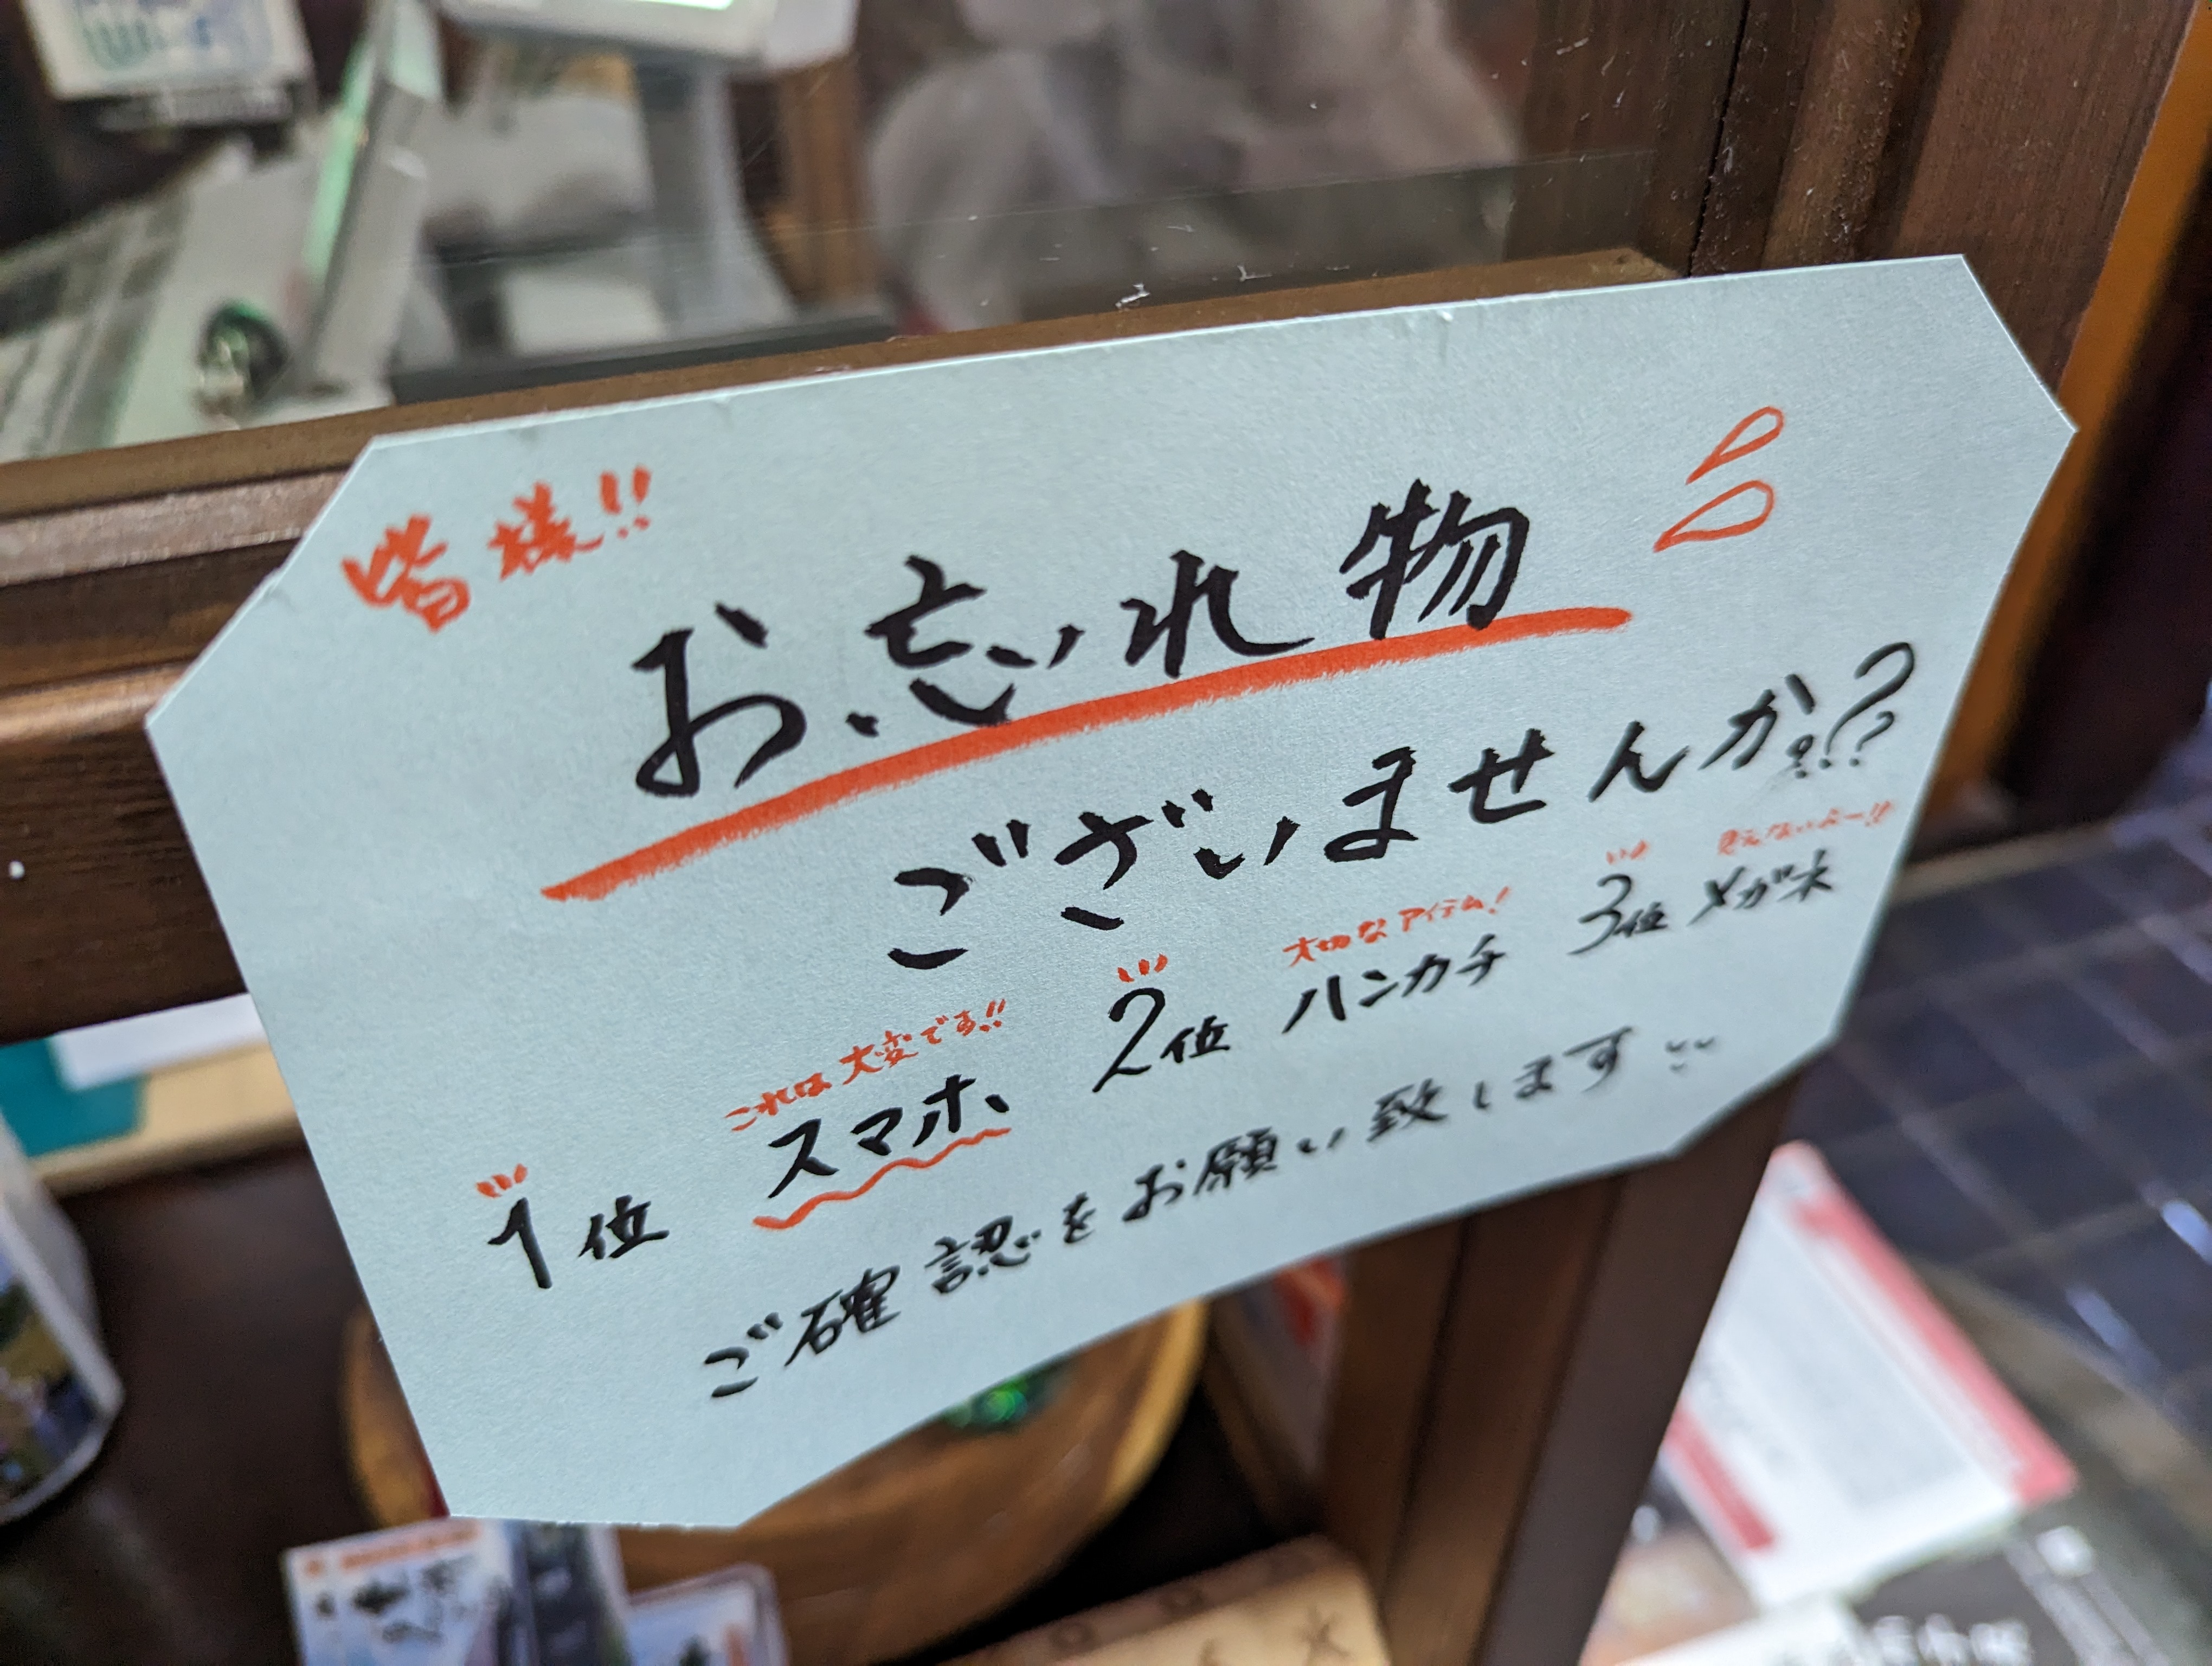 皆様!!
お忘れ物
ございませんか???
1位 スマホ 2位 ハンカチ 3位 メガネ
これは大変です!! 大切なアイテム! 見えないよー!!
ご確認をお願い致します